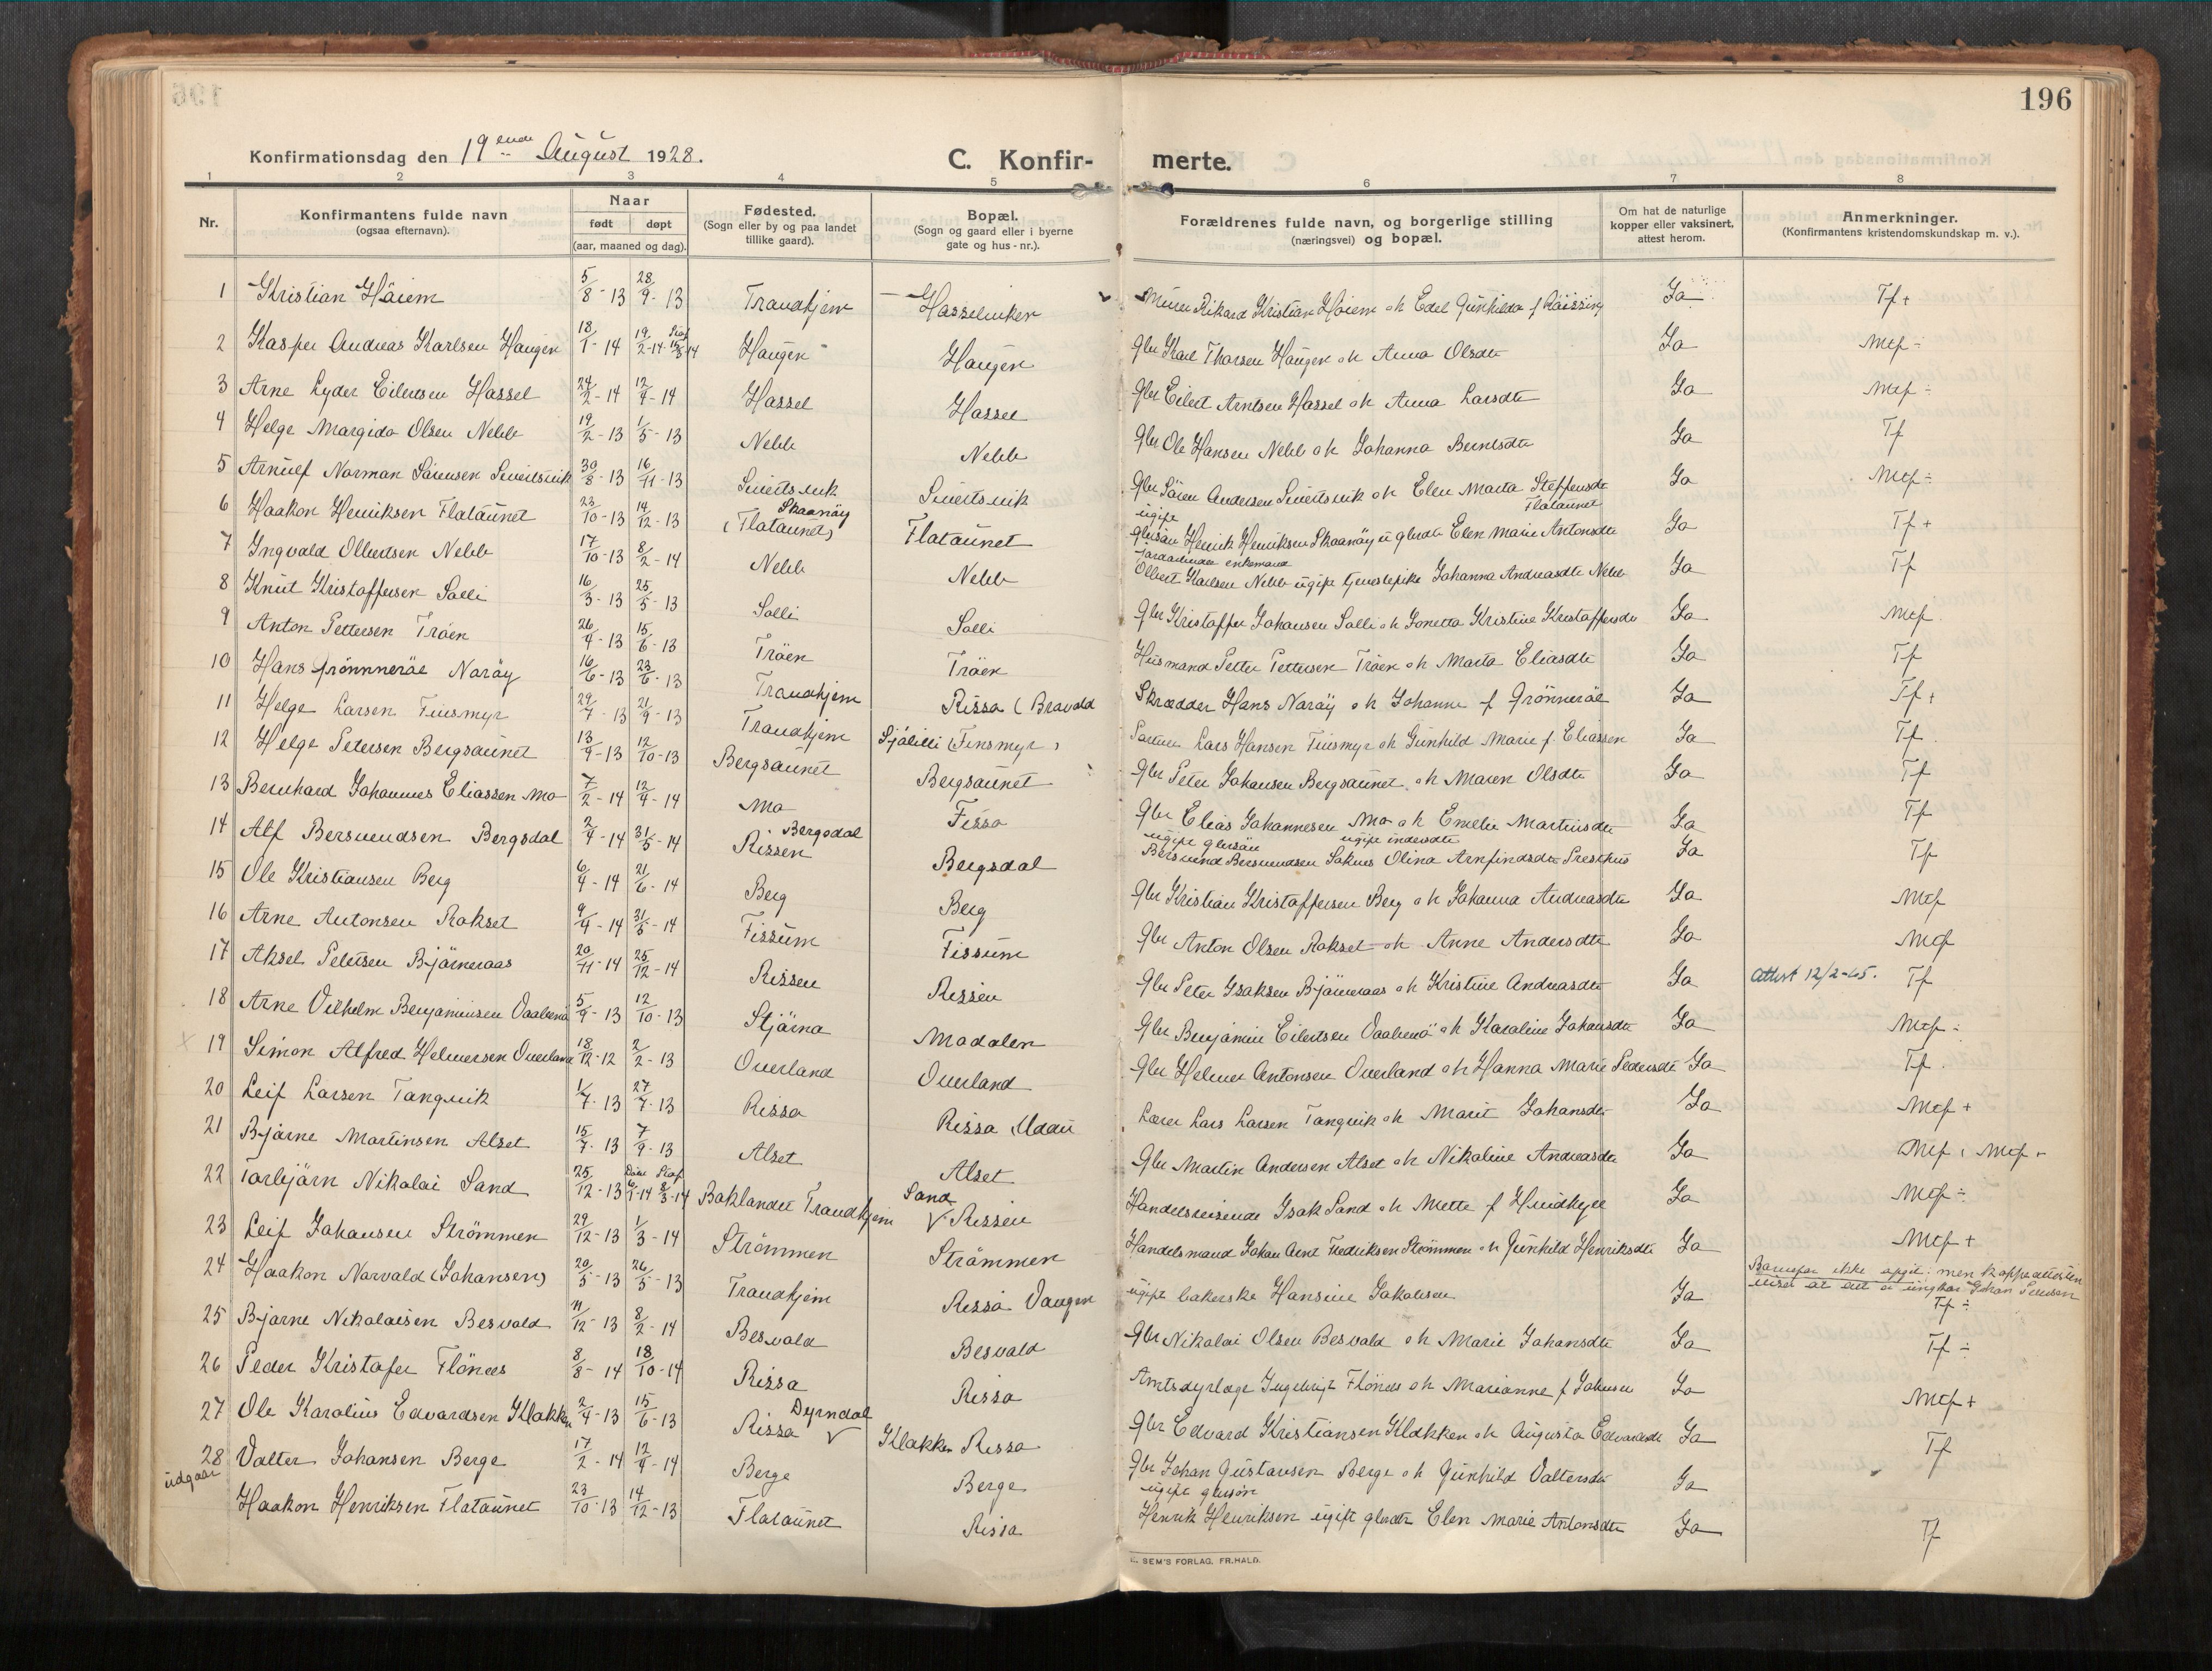 196
Konfirmationsdag den 19ende August 1928.
C. Konfir- merte.
1 2 3 4 5 6 7 8
Nr.
Konfirmantens fulde navn
(ogsaa efternavn).
Naar
født døpt
(aar, maaned og dag).
Fødested.
(Sogn eller by og paa landet
tillike gaard).
Bopæl.
(Sogn og gaard eller i byerne
gate og hus-nr.).
Forældrenes fulde navn, og borgerlige stilling
(næringsvei) og bopæl.
Om hat de naturlige
kopper eller vaksinert,
attest herom.
Anmerkninger.
(Konfirmantens kristendomskundskap m. v.).
1 Kristian Håiem 5/8-13 28/9-13 Trondhjem Hasselviken Rikard Kristian Høiem oh Edel Gunhilda f Ja Tf+
2 Kasper Andreas Karlsen Haugen 18/1-14 19/2-14 Haugen Haugen Gbr Karl Thorsen Haugen oh Anna Olsdtr Ja Mtf÷
3 Arne Lyder Eilertsen Hassel 24/2-14 12/4-14 Hassel Hassel Gbr Eilert Arntsen Hassel oh Anna Larsdtr Ja Mtf÷
4 Helge Margido Olsen Nebb 19/2-13 1/5-13 Nebb Nebb Gbr Ole Hansen Nebb oh Johanna Berntsdtr Ja Tf
5 Arnulf Norman Sørensen Sivertsvik 30/8-13 16/11-13 Sivertsvik Sivertsvik Gbr Søren Andersen Sivertsvik oh Elen Marta Steffensdtr Ja Mtf÷
6 Haakon Henriksen Flataunet 23/10-13 14/12-13 Skaanøy (Flataunet) Flataunet ugift gbrsøn Henrik Henriksen Skaanøy u gbrdtr Elen Marie Antonsdtr Flataunet Ja Tf+
7 Ingvald Olbertsen Nebb 17/10-13 8/2-14 Nebb Nebb enkemand Olbert Karlsen Nebb ugift tjenestepike Johanna Andreasdtr Nebb Ja Tf
8 Knut Kristoffersen Solli 16/3-13 25/5-13 Solli Solli Gbr Kristoffer Johansen Solli oh Jonetta Kristine Kristoffersdtr Ja Mtf
9 Anton Pettersen Trøen 26/4-13 15/6-13 Trøen Trøen Husmand Petter Pettersen Trøen oh Marta Eliasdtr Ja Tf
10 Hans Grönneröe Narøy 16/6-13 23/6-13 Trondhjem Rissa (Bravold Skrædder Hans Narøy oh Johanne f Grönneröe Ja Tf+
11 Helge Larsen Finsmyr 29/7-13 21/9-13 Trondhjem Sjølilli (Finsmyr) Lars Hansen Finsmyr oh Gunhild Marie f. Eliassen Ja Tf
12 Helge Petersen Bergsaunet 13/9-13 12/10-13 Bergsaunet Bergsaunet Gbr Peter Johansen Bergsaunet oh Maren Olsdtr Ja Tf
13 Bernhard Johannes Eliassen Mo 7/2-14 12/4-14 Mo Fissa Gbr Elias Johannesen Mo oh Emelie Martinsdtr Ja Tf
14 Alf Bersvendsen Bergsdal 2/4-14 31/5-14 Bergsdal Rissen Bergsdal ugift gbrsøn Bersvend Bersvendsen ugift inderdtr Olina Arnfindsdtr Presthus Ja Tf
15 Ole Kristiansen Berg 6/4-14 21/6-14 Berg Berg Gbr Kristian Kristoffersen Berg oh Johanna Andreasdtr Ja Mtf
16 Arne Antonsen Rokset 9/4-14 31/5-14 Fissum Fissum Gbr Anton Olsen Rokset oh Anne Andersdtr Ja Mtf
17 Aksel Petersen Bjørneraas 20/11-14 25/12-14 Rissen Rissen Gbr Peter Isaksen Bjørneraas oh Kristine Andreasdtr Ja Attest 12/2-65. Tf
18 Arne Vilhelm Benjaminsen Vaabenø 5/9-13 12/10-13 Stjørna Modalen Gbr Benjamin Eilertsen Vaabenø oh Karoline Johansdtr Ja Mtf÷
19 Simon Alfred Helmersen Overland 18/12-12 2/2-13 Overland Overland Gbr Helmer Antonsen Overland oh Hanna Marie Pedersdtr Ja Tf.
20 Leif Larsen Tangvik 1/7-13 27/7-13 Rissa Rissa (Uddu Lærer Lars Larsen Tangvik oh Marit Johansdtr Ja Mtf+
21 Bjarne Martinsen Alset 15/7-13 7/9-13 Alset Alset Gbr Martin Andersen Alset oh Nikoline Andreasdtr Ja Mtf
22 Torbjørn Nikolai Sand 25/12-13 6/1-14 8/3-14 Baklandet Trondhjem Sand Rissen Handelsreisende Isak Sand oh Mette f Ja Mtf÷
23 Leif Johansen Strömmen 29/12-13 1/3-14 Strömmen Strömmen Handelsmand Johan Arnt Fredriksen Strömmen oh Gunhild Henriksdtr Ja Mtf+
24 Haakon Norvald (Johansen) 20/5-13 26/5-13 Trondhjem Rissa Vangen ugift bakerske Hansine Jakobsen Ja Barnefar ikke opgit: men koppeattesten viser at det er ungkar Johan Tf÷
25 Bjarne Nikolaisen Besvold 11/12-13 8/2-14 Besvold Besvold Gbr Nikolai Olsen Besvold oh Marie Johansdtr Ja Tf÷
26 Peder Kristofer Flönes 8/8-14 18/10-14 Rissa Rissa Amtsdyrlæge Ingebrigt Flönes oh Marianne f Johnsen Ja Mtf+
27 Ole Karolius Edvardsen Klakken 2/4-13 15/6-13 Dyrndal Rissa Klakken Rissa Gbr Edvard Kristiansen Klakken oh Augusta Edvardsdtr Ja Tf
28 Valter Johansen Berge 17/2-14 12/4-14 Berge Berge Gbr Johan Gustavsen Berge oh Gunhild Valtersdtr Ja
udgaar Haakon Henriksen Flataunet 23/10-13 14/12-13 Flataunet Rissa ugift gbrsøn Henrik Henriksen ugift gbrdtr Elen Marie Antonsdtr Ja Tf
SEM'S FORLAG. FR.HALD.